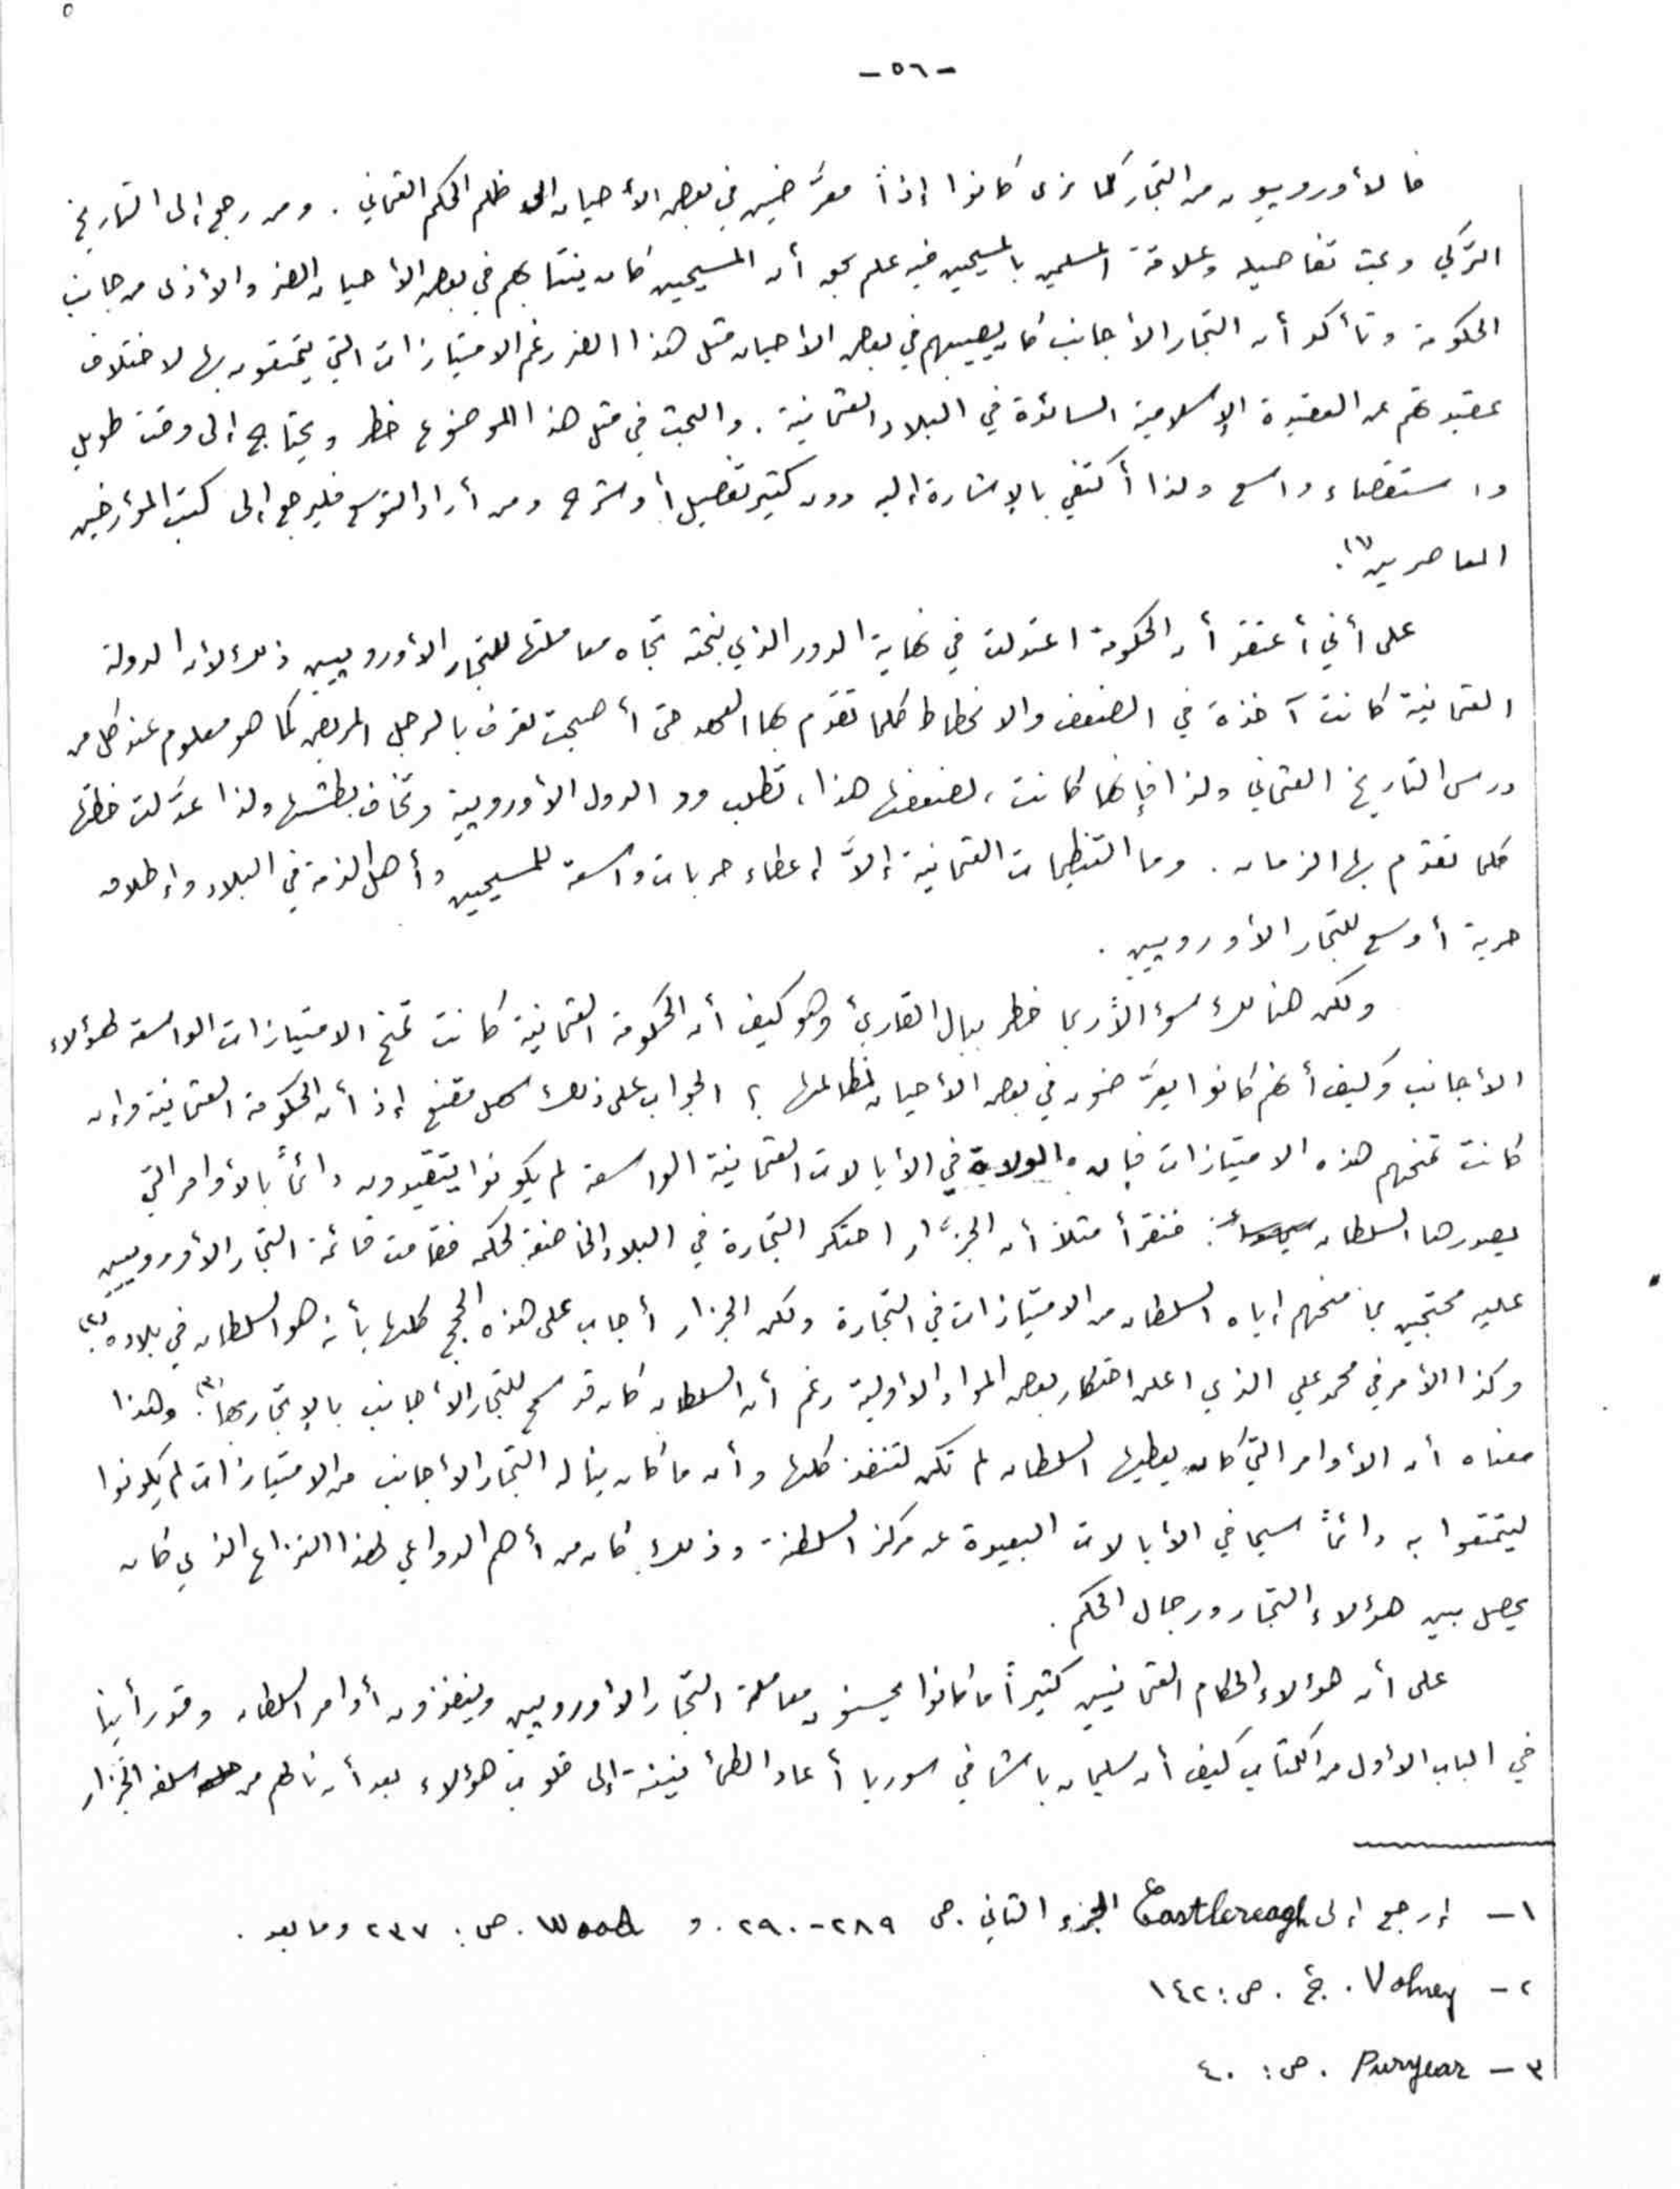 -٥٦-
فالأوروبيون من التجار كما نرى كانوا إذاً معرَّضين في بعض الأحيان إلى ظلم الحكم العثماني . ومن رجع إلى التاريخ
التركي وبحث تفاصيله وعلاقة المسلمين بالمسيحيين فيه علم بحق أن المسيحيين كان ينتابهم في بعض الأحيان الضر والأذى من جانب
الحكومة وتأكد أن التجار الأجانب كان يصيبهم في بعض الأحيان مثل هذا الضر رغم الامتيازات التي يتمتعون بها لاختلاف
عقيدتهم عن العقيدة الإسلامية السائدة في البلاد العثمانية . والبحث في مثل هذا الموضوع خطر ويحتاج إلى وقت طويل
واستقصاء واسع ولذا أكتفي بالإشارة إليه دون كثير تفصيل أو شرح ومن أراد التوسع فليرجع إلى كتب المؤرخين
المعاصرين(١).
على أني أعتقد أن الحكومة اعتدلت في نهاية الدور الذي نبحثه تجاه معاملتها للتجار الأوروبيين ذلك لأن الدولة
العثمانية كانت آخذة في الضعف والانحطاط كلما تقدّم بها العهد حتى أصبحت تعرف بالرجل المريض كما هو معلوم عند كل من
درس التاريخ العثماني ولذا فإنها كانت ، لضعفها هذا ، تطلب ود الدول الأوروبية وتخاف بطشها ولذا عدَّلت خطتها
كلما تقدّم بها الزمان . وما التنظيمات العثمانية إلاَّ إعطاء حريات واسعة للمسيحيين وأهل الذمة في البلاد وإطلاق
حرية أوسع للتجار الأوروبيين .
ولكن هنالك سؤالاً ربما خطر ببال القارئ وهو كيف أن الحكومة العثمانية كانت تمنح الامتيازات الواسعة لهؤلاء
الأجانب وكيف أنهم كانوا يعرَّضون في بعض الأحيان لمظالمها ؟ الجواب على ذلك سهل مقنع إذ أن الحكومة العثمانية وإن
كانت تمنحهم هذه الامتيازات فإن الولاة في الأيالات العثمانية الواسعة لم يكونوا يتقيدون دائماً بالأوامر التي
يصدرها السلطان . فنقرأ مثلاً أن الجزَّار احتكر التجارة في البلاد الخاضعة لحكمه فقامت قائمة التجار الأوروبيين
عليه محتجين بما منحهم إياه السلطان من الامتيازات في التجارة ولكن الجزار أجاب على هذه الحجج كلها بأنه هو السلطان في بلاده(٢).
وكذا الأمر في محمد علي الذي اعلن احتكار بعض المواد الأولية رغم أن السلطان كان قد سمح للتجار الأجانب بالإتجار بها(٣). وهذا
معناه أن الأوامر التي كان يعطيها السلطان لم تكن لتنفذ كلها وأن ما كان يناله التجار الأجانب من الامتيازات لم يكونوا
ليتمتعوا به دائماً سيما في الأيالات البعيدة عن مركز السلطنة وذلك كان من أهم الدواعي لهذا النزاع الذي كان
يحصل بين هؤلاء التجار ورجال الحكم .
على أن هؤلاء الحكام العثمانيين كثيراً ما كانوا يحسنون معاملة التجار الأوروبيين وينفذون أوامر السلطان وقد رأينا
في الباب الأول من الكتاب كيف أن سليمان باشا في سوريا أعاد الطمأنينة إلى قلوب هؤلاء بعد أن نالهم من سلفه الجزار
١ - إرجع إلى Castlereagh الجزء الثاني . ص ٢٨٩-٢٩٠ . و Wood . ص : ٢٣٧ وما بعد .
٢ - Volney . ج . ص : ١٤٢
٣ - Puryear . ص : ٤٠